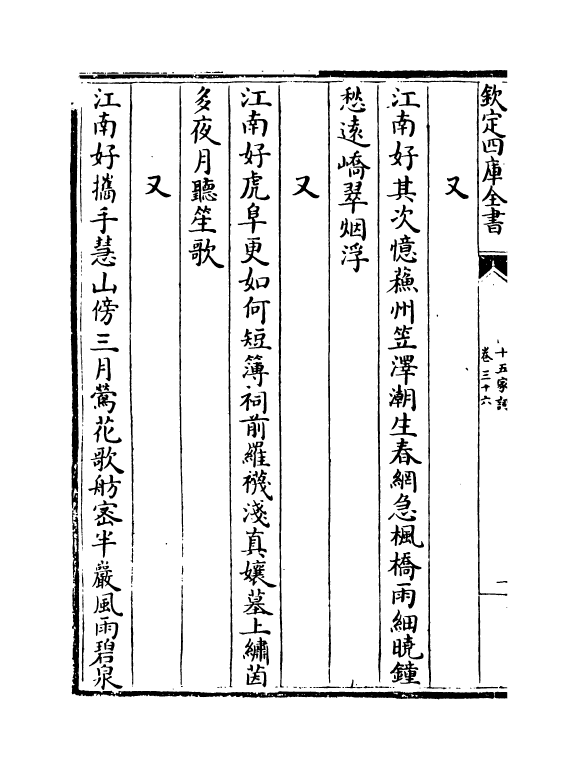 欽定四庫全書
十五家詞
卷三十六
一
又
江南好其次憶蘓州笠澤潮生春網急楓橋雨細曉鐘
愁遠嶠翠烟浮
又
江南好虎阜更如何短簿祠前羅襪淺真孃墓上繡茵
多夜月聽笙歌
又
江南好攜手慧山傍三月鶯花歌舫宻半巖風雨碧泉